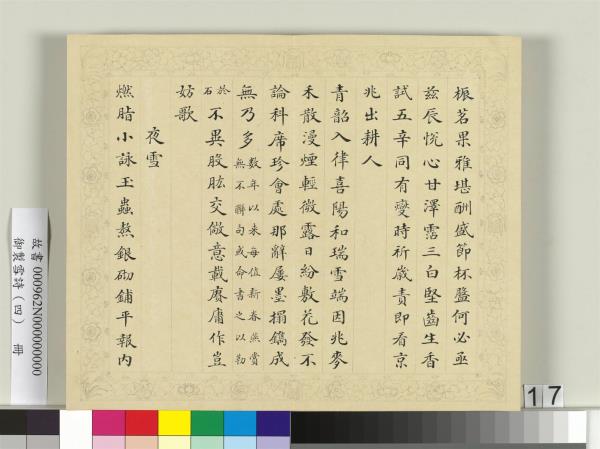 茗果雅堪酬盛節杯盤何必亟
茲辰悅心甘澤霑三白堅齒生香
試五辛同有變時祈歲責即看京
兆出耕人
青韶入律喜陽和瑞雪端因兆麥
禾散漫煙輕微露日紛敷花發不
論科席珍會處那辭屢墨搨鐫成
無乃多
數年以來每值新春燕賞
無不聯句或命書之以勒
於
石
不異股肱交儆意載賡庸作豈
妨歌
夜雪
燃脂小詠玉蟲熬銀砌鋪平報內
故書 000962N000000000
御製雪詩（四） 冊
17